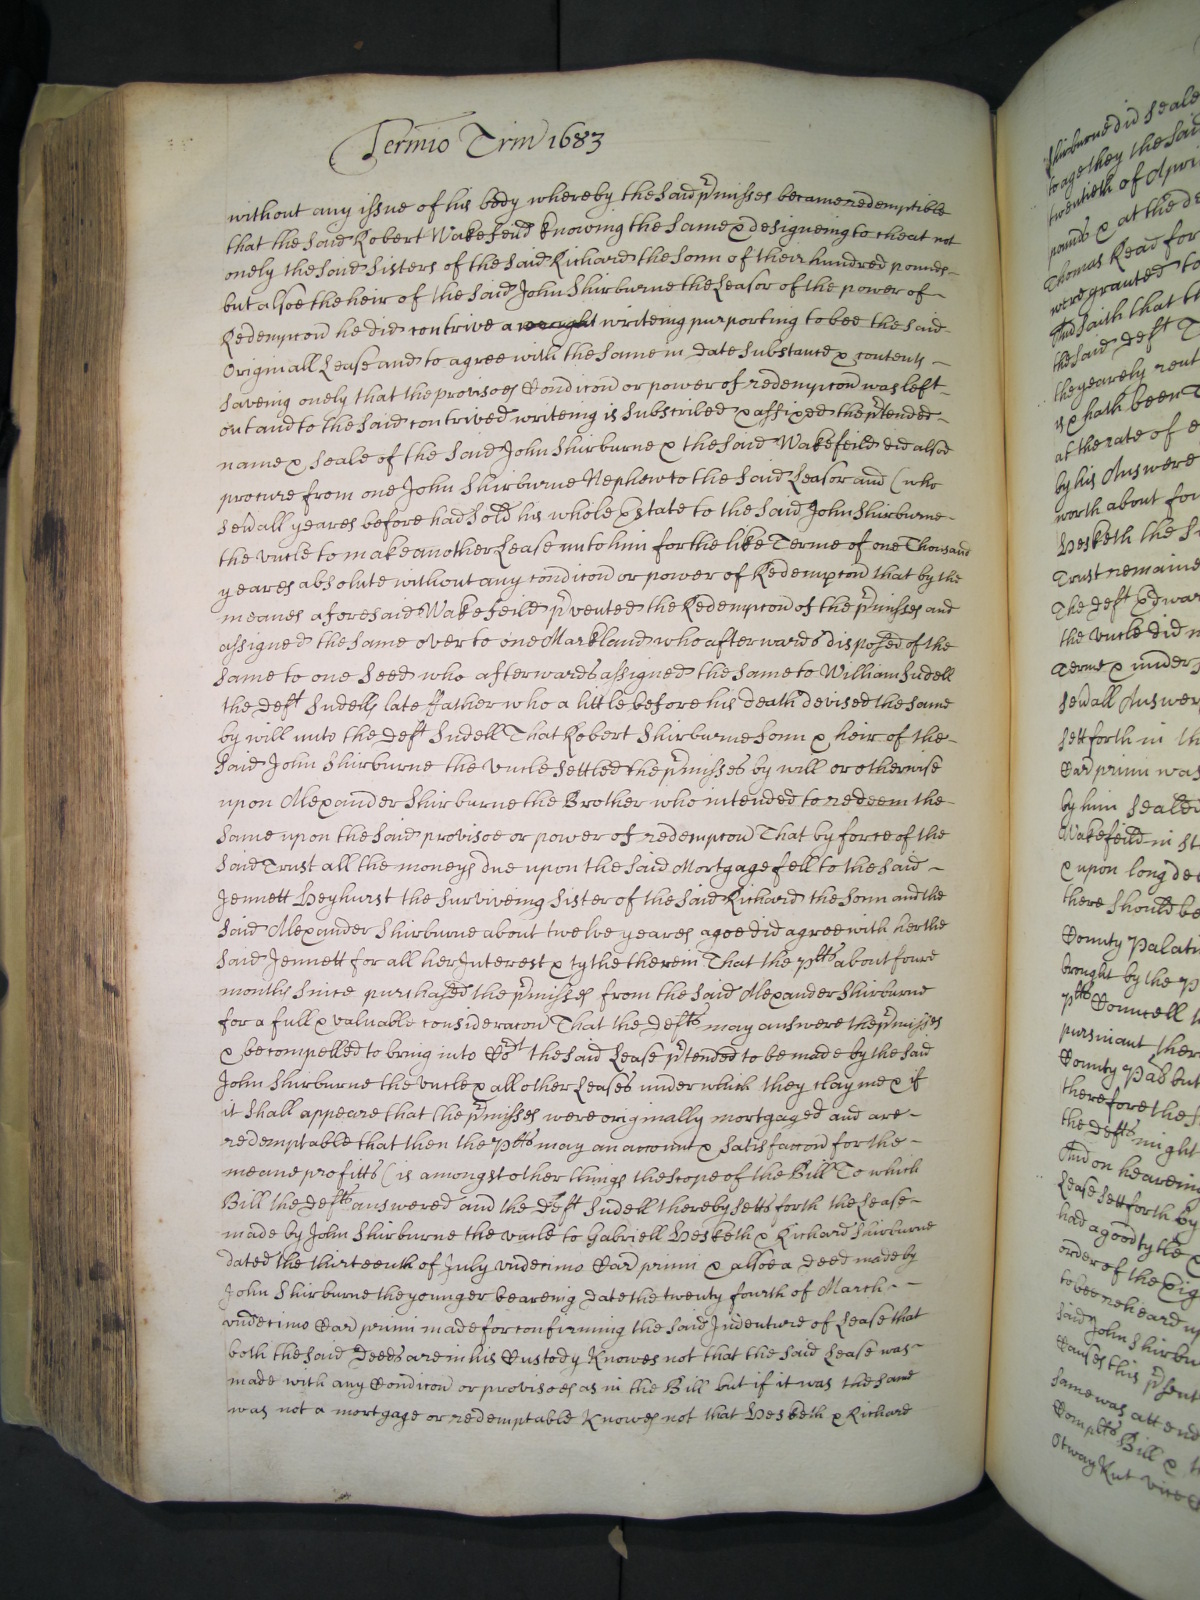 Termio Trin 1683
without any issue of his body whereby the said p'misses became redemptible
that the said Robert Wakefeild knowing the same & designeing to cheat not
onely the said Sisters of the said Richard the Sonn of their hundred pounds
but alsoe the heir of the said John Shirburne the Leasor of the power of
Redempcon he did contrive a writeing purporting to bee the said
Originall Lease and to agree with the same in date substance & contents
saveing onely that the provisoes Condicon or power of redempcon was left
out and to the said contrived writeing is subscribed & affixed the p'tended
name & seale of the said John Shirburne & the said Wakefeild did alsoe
procure from one John Shirburne Nephew to the said Leasor and (who
sev'all yeares before had sold his whole Estate to the said John Shirburne
the Vncle to make another Lease unto him for the like Terme of one Thousand
yeares absolute without any condicon or power of Redempcon that by the
meanes aforesaid Wakefeild p'vented the Redempcon of the p'misses and
assigned the same over to one Markland who afterwards disposed of the
same to one Seed who afterwards assigned the same to William Sudell
the Deft Sudells late ffather who a little before his death devised the same
by will unto the Deft Sudell That Robert Shirburne sonn & heir of the
said John Shirburne the Vncle settled the p'misses by will or otherwise
upon Alexander Shirburne the Brother who intended to redeem the
same upon the said provisoe or power of redempcon That by force of the
said Trust all the moneys due upon the said Mortgage fell to the said
Jennett Heyhurst the surviveing sister of the said Richard the sonn and the
said Alexander Shirburne about twelve yeares agoe did agree with her the
said Jennett for all her Interest & tytle therein That the Plts about foure
months since purchased the p'misses from the said Alexander Shirburne
for a full & valuable consideracon That the Defts may answere the p'misses
& be compelled to bring into Cort the said Lease p'tended to be made by the said
John Shirburne the Vncle & all other Leases under which they clayme & if
it shall appeare that the p'misses were originally mortgaged and are
redemptable that then the Plts may an account & satisfaccon for the
meane profitts (is amongst other things the scope of the Bill To which
Bill the Defts answered and the Deft Sudell thereby setts forth the Lease
made by John Shirburne the vncle to Gabriell Hesketh & Richard Shirburne
dated the thirteenth of July vndecimo Car primi & alsoe a deed made by
John Shirburne the younger beareing date the twenty fourth of March
vndecimo Car primi made for confirming the said Indenture of Lease that
both the said Deeds are in his Custody Knowes not that the said Lease was
made with any Condicon or provisoes as in the Bill but if it was the same
was not a mortgage or redemptable Knowes not that Hesketh & Richard
Shirburne did seale
to age they the said
twentieth of
pounds & at the
Thomas Read for
were granted to
And saith that
the said Deft
the yearely rent
is & hath been
at the rate of
by his Answere
worth about
Hesketh the
Trust remaine
The Deft
the Vncle did
Terme & under
sev'all Answer
sett forth in
Car primi was
by him sealed
Wakefeild in
& upon long
there should be
County Palat
brought by the
Plts Councell
pursuant
County Pal but
therefore the
the Defts might
And on heareing
Lease sett forth by
had a good tytle &
order of the
to bee reheard
said John
Causes this p'sent
same was attend
Complts Bill &
Otway Knt